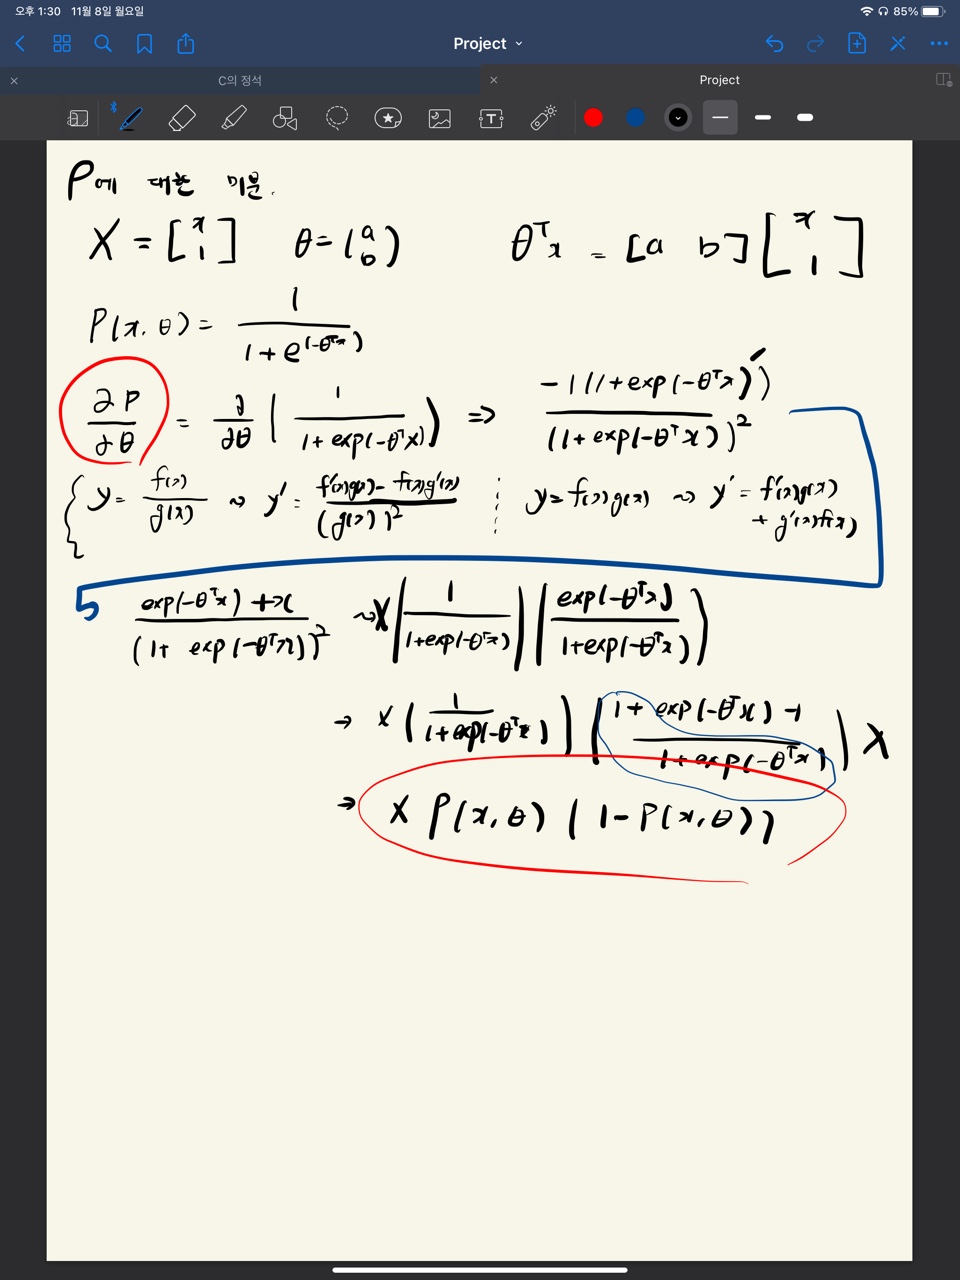 오후 1:30 11월 8일 월요일
85%
Project
C의 정석
Project
P에 대한 미분.
X = [x 1] θ = (a b) θᵀx = [a b] [x 1]
P(x, θ) = 1 / 1 + e^(-θᵀx)
∂P/∂θ = ∂/∂θ ( 1 / 1 + exp(-θᵀx) ) ⇒ -1(1+exp(-θᵀx)′) / (1 + exp(-θᵀx))²
{ y = f(x)/g(x) ~> y′ = f′(x)g(x) - f(x)g′(x) / (g(x))² y = f(x)g(x) ~> y′ = f′(x)g(x)
+ g′(x)f(x)
exp(-θᵀx) + x / (1 + exp(-θᵀx))² ~> X ( 1 / 1+exp(-θᵀx) ) ( exp(-θᵀx) / 1+exp(-θᵀx) )
→ X ( 1 / 1+exp(-θᵀx) ) ( 1 + exp(-θᵀx) - 1 / 1+exp(-θᵀx) ) X
→ X P(x, θ) ( 1 - P(x, θ))